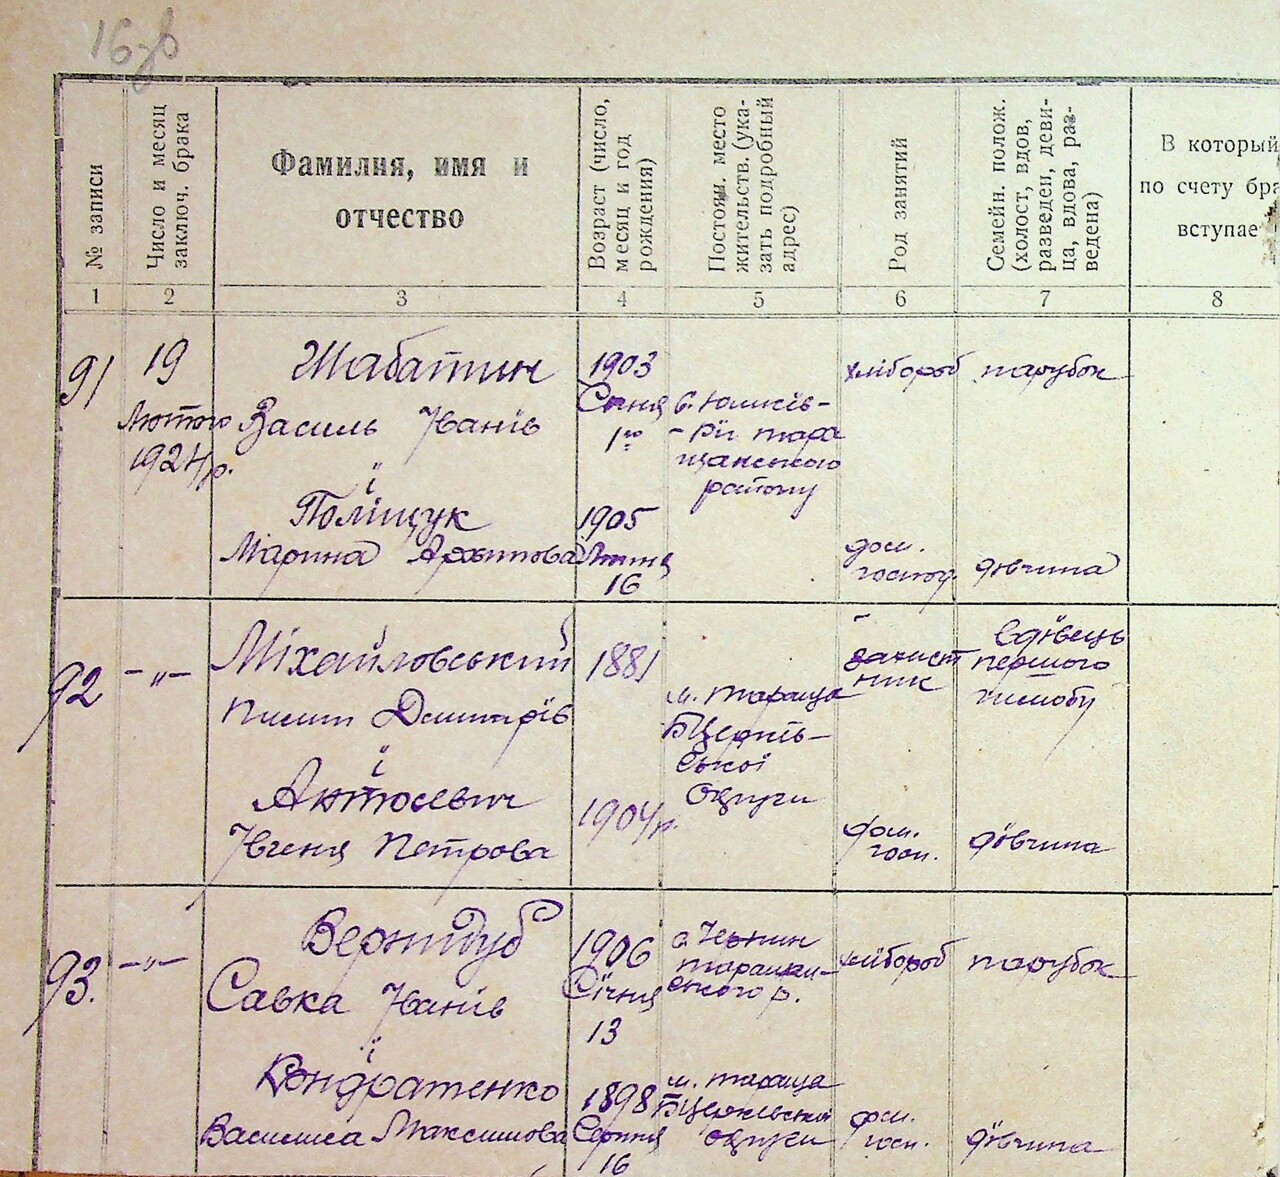 16зв
№ записи
Число и месяц
заключ. брака
Фамилия, имя и
отчество
Возраст (число,
месяц и год
рождения)
Постоян. место
жительств. (ука-
зать подробный
адрес)
Род занятий
Семейн. полож.
(холост, вдов,
разведен, деви-
ца, вдова, раз-
ведена)
В который
по счету бра
вступае
1 2 3 4 5 6 7 8
91
19
Лютого
1924 р.
Шабатин
Василь Іванів
і
Поліщук
Марина Архипова
1903
Січня
1го
1905
Липня
16
с. Юшків-
-Ріг тара
щанського
району
хлібороб
парубок
дом.
господ.
дівчина
92
-"-
Міхайловський
Пилип Дмитрів
і
Антосевич
Івгеня Петрова
1881
1904 р.
м. Тараща
БЦерків-
ської
Округи
захист
ник
вдівець
першого
шлюбу
дом.
госп.
дівчина
93.
-"-
Вернидуб
Савка Іванів
і
Кондратенко
Василиса Максимова
1906
Січня
13
1898
Серпня
16
с. Чернин
таращан-
ського р.
м. Тараща
БЦерківської
округи
хлібороб
парубок
дом.
госп.
дівчина